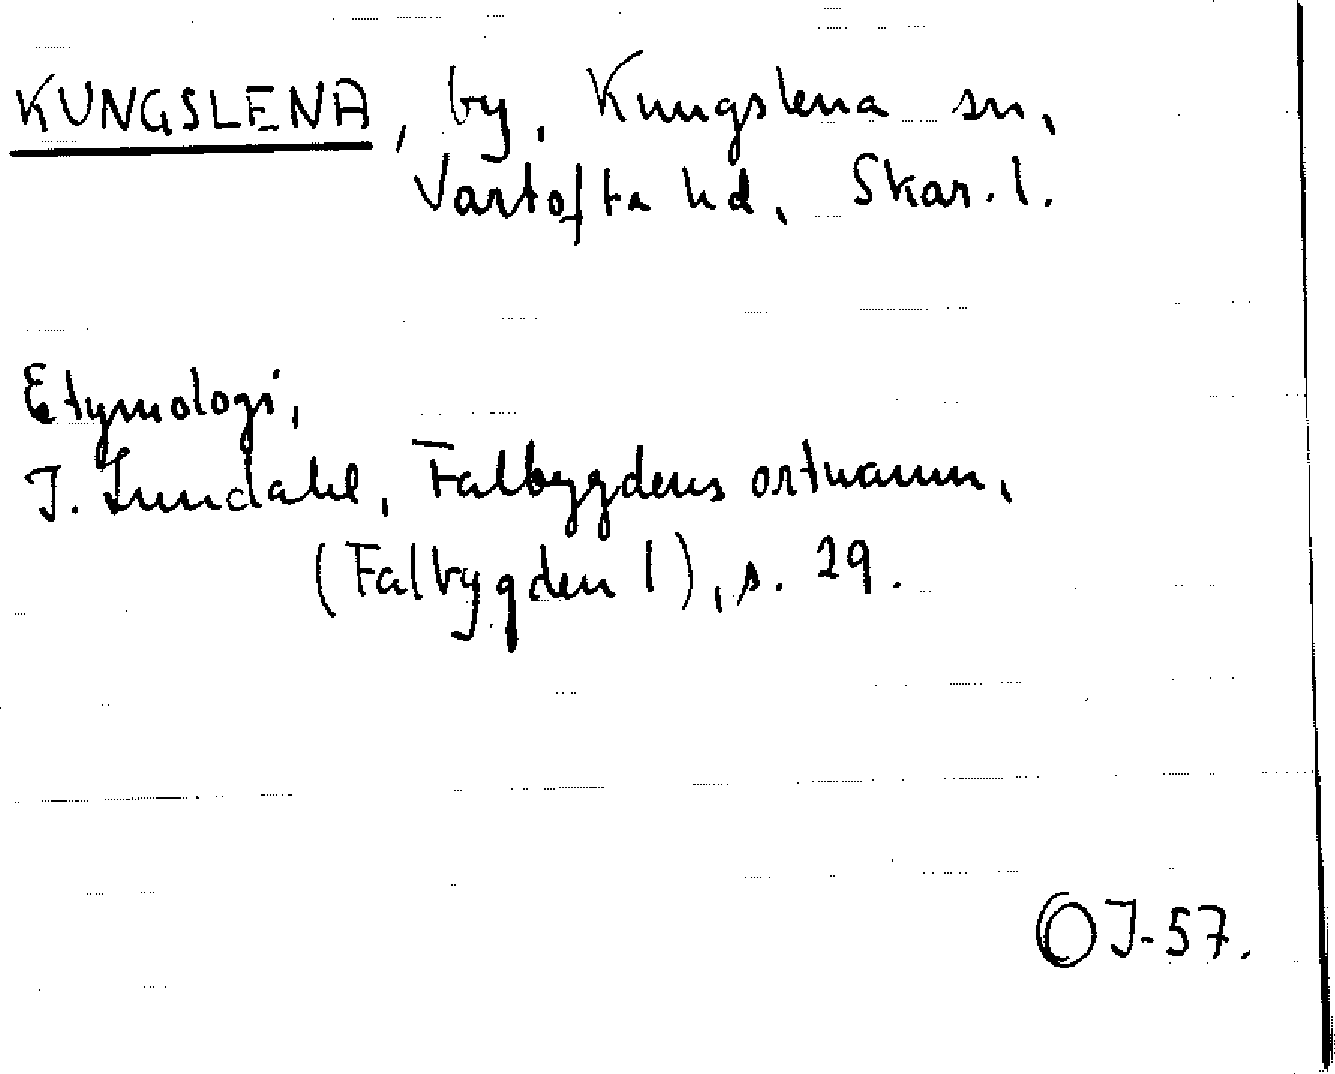 KUNGSLENA, by, Kungslena sn,
Vartofta hd, Skar. l.
Etymologi,
I. Lundahl, Falbygdens ortnamn,
(Falbygden 1), s. 29.
OJ-57.